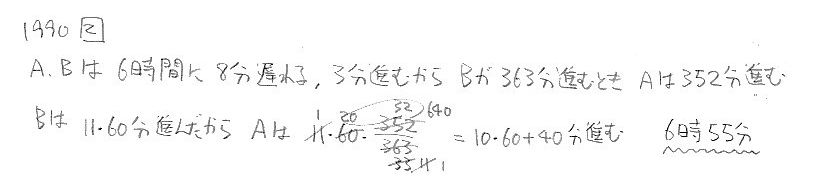 1990 2
A.Bは 6時間に 8分遅れる, 3分進むから Bが363分進むとき Aは352分進む
Bは 11・60分進んだから Aは 11・60・352/363 = 10・60+40分進む 6時55分
1 20 32 640
33 11 1